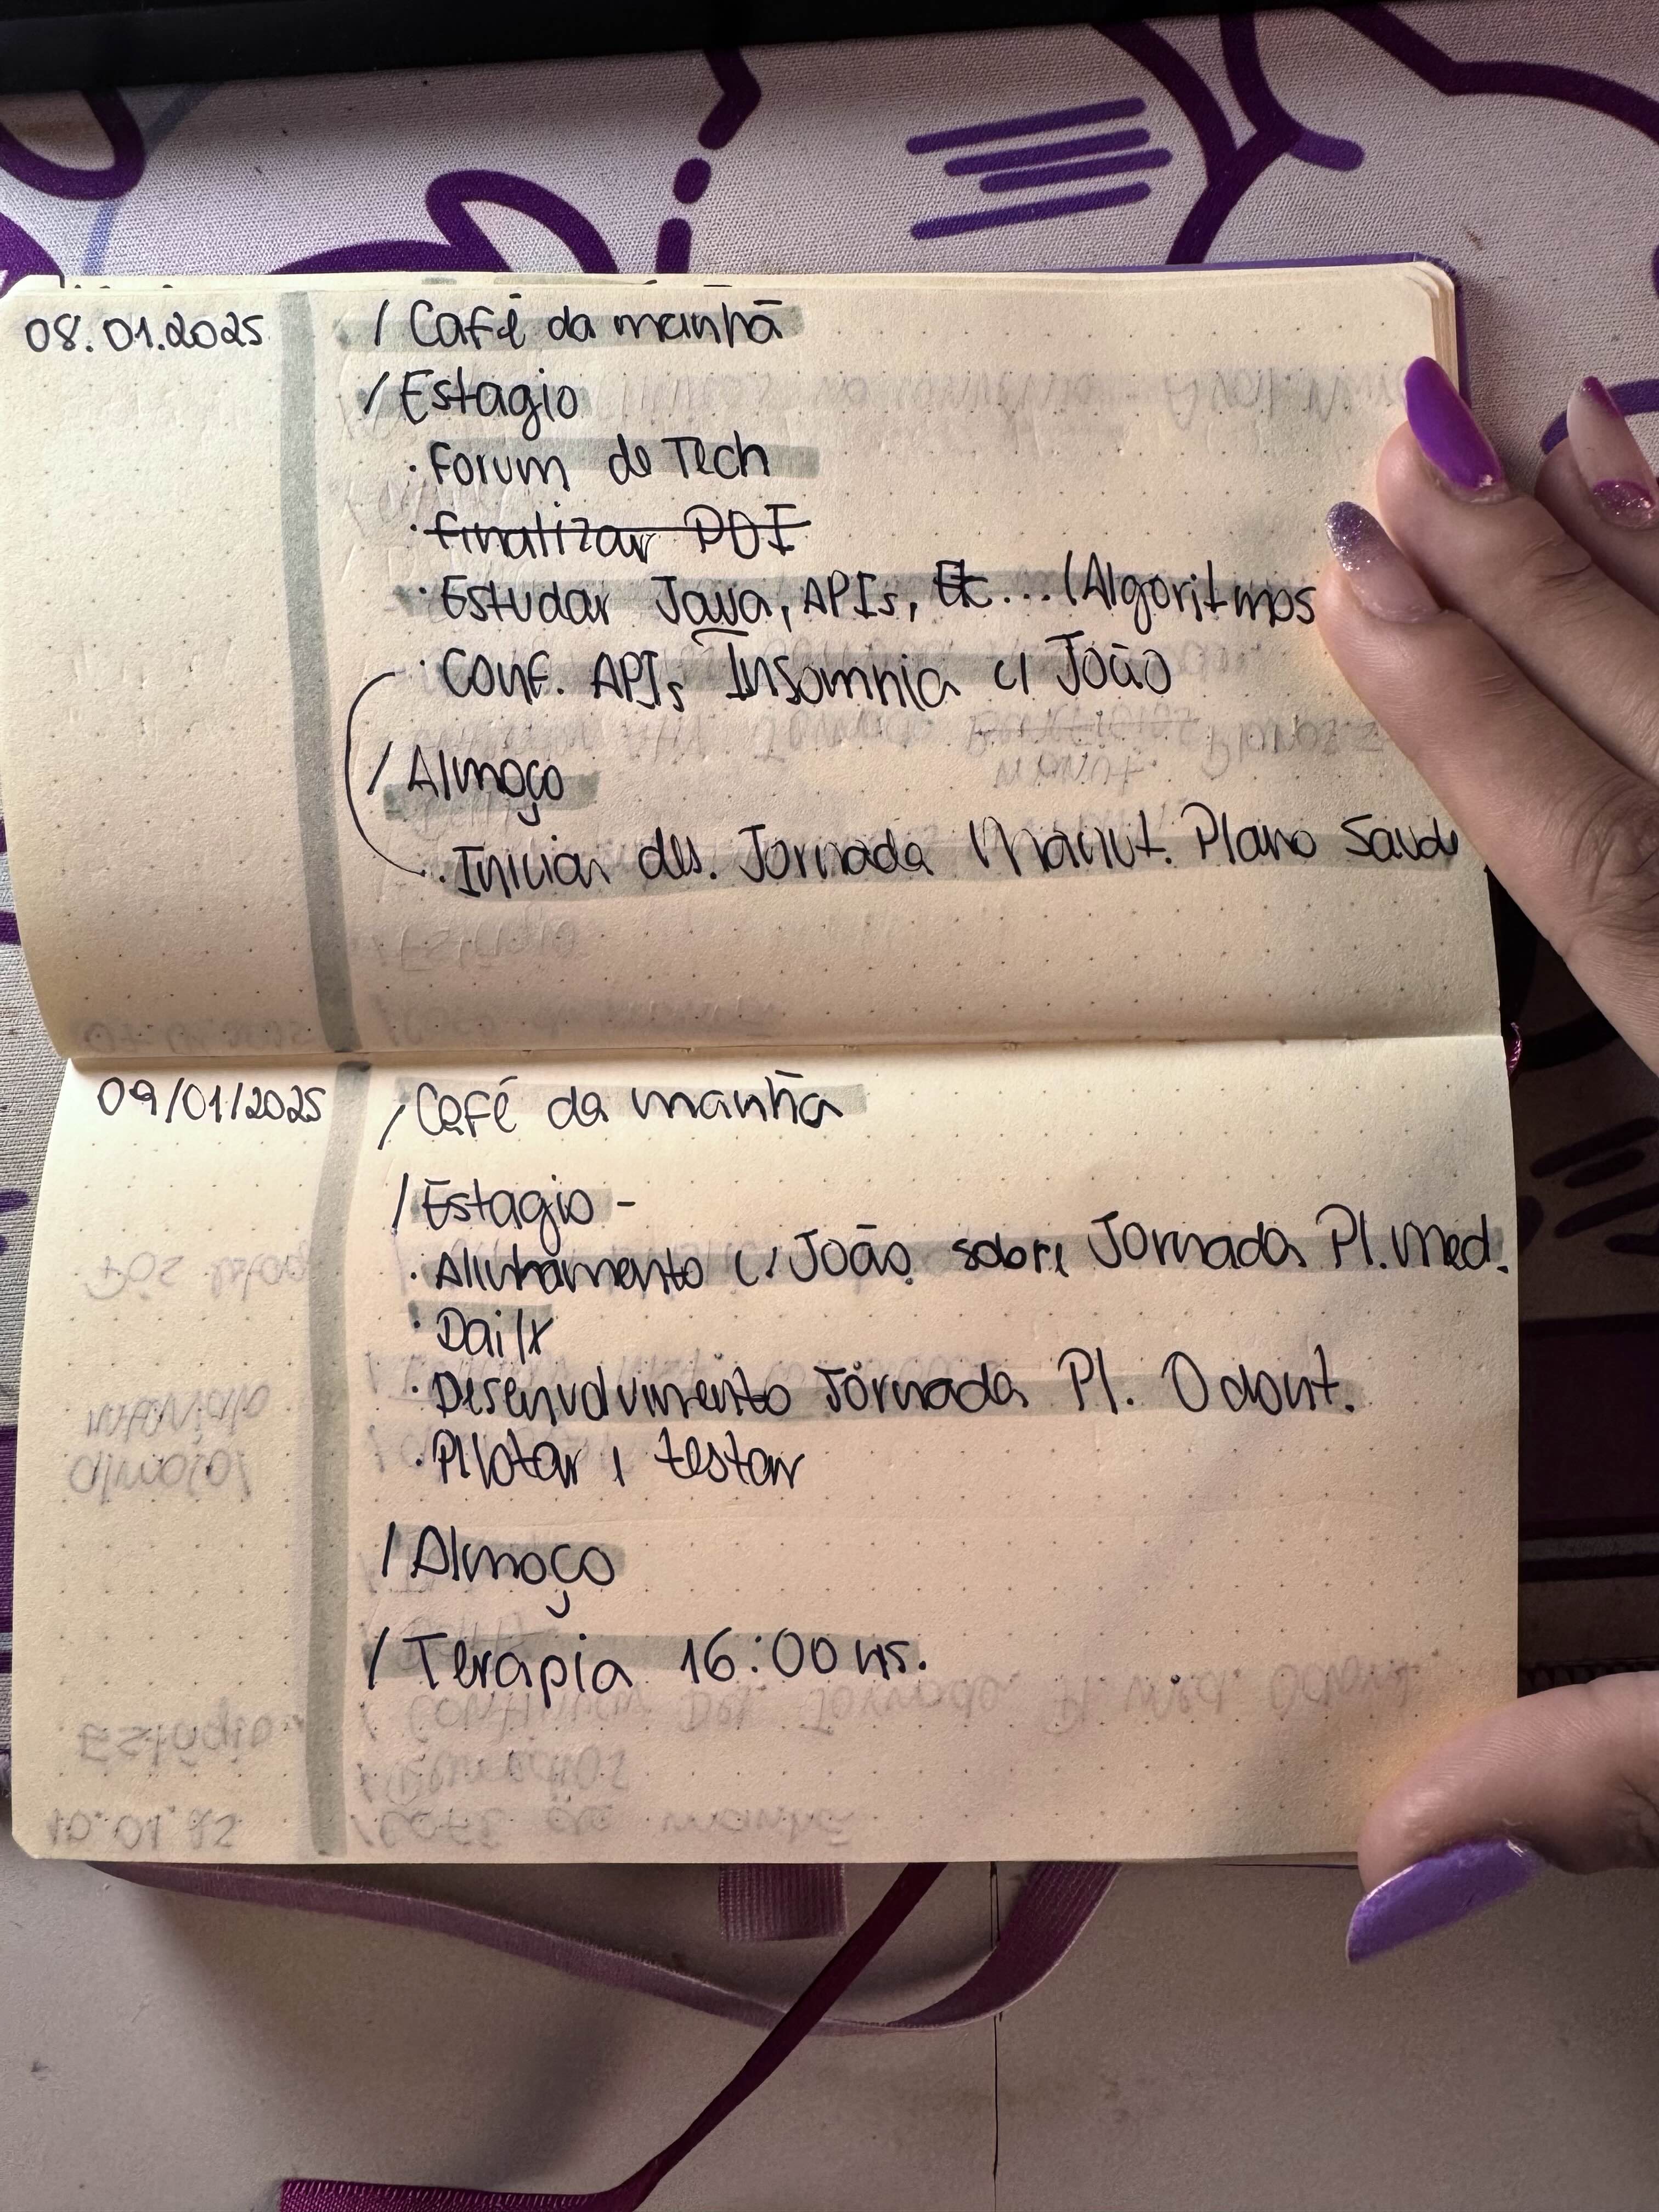 08.01.2025
/ Café da manhã
/ Estagio
· Forum de Tech
· finalizar PDI
· Estudar Java, APIs, Etc... (Algoritmos
· Conf. APIs Insomnia c/ João
/ Almoço
· Iniciar des. Jornada Manut. Plano Saude
09/01/2025
/ Café da manhã
/ Estagio -
· Alinhamento c/ João sobre Jornada Pl. Med.
· Daily
· Desenvolvimento Jornada Pl. Odont.
· Pilotar e testar
/ Almoço
/ Terapia 16:00 hs.